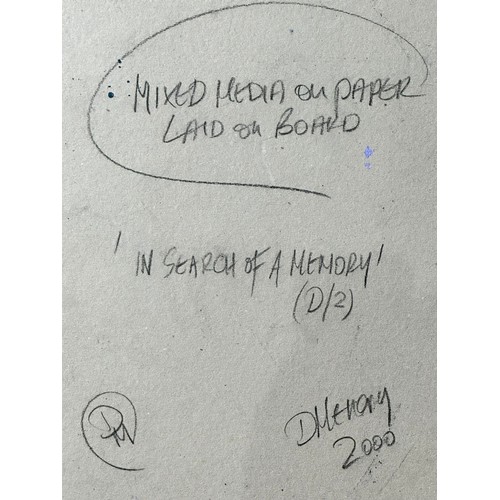 MIXED MEDIA ON PAPER
LAID ON BOARD
'IN SEARCH OF A MEMORY'
(D/2)
DM
DMemory
2000